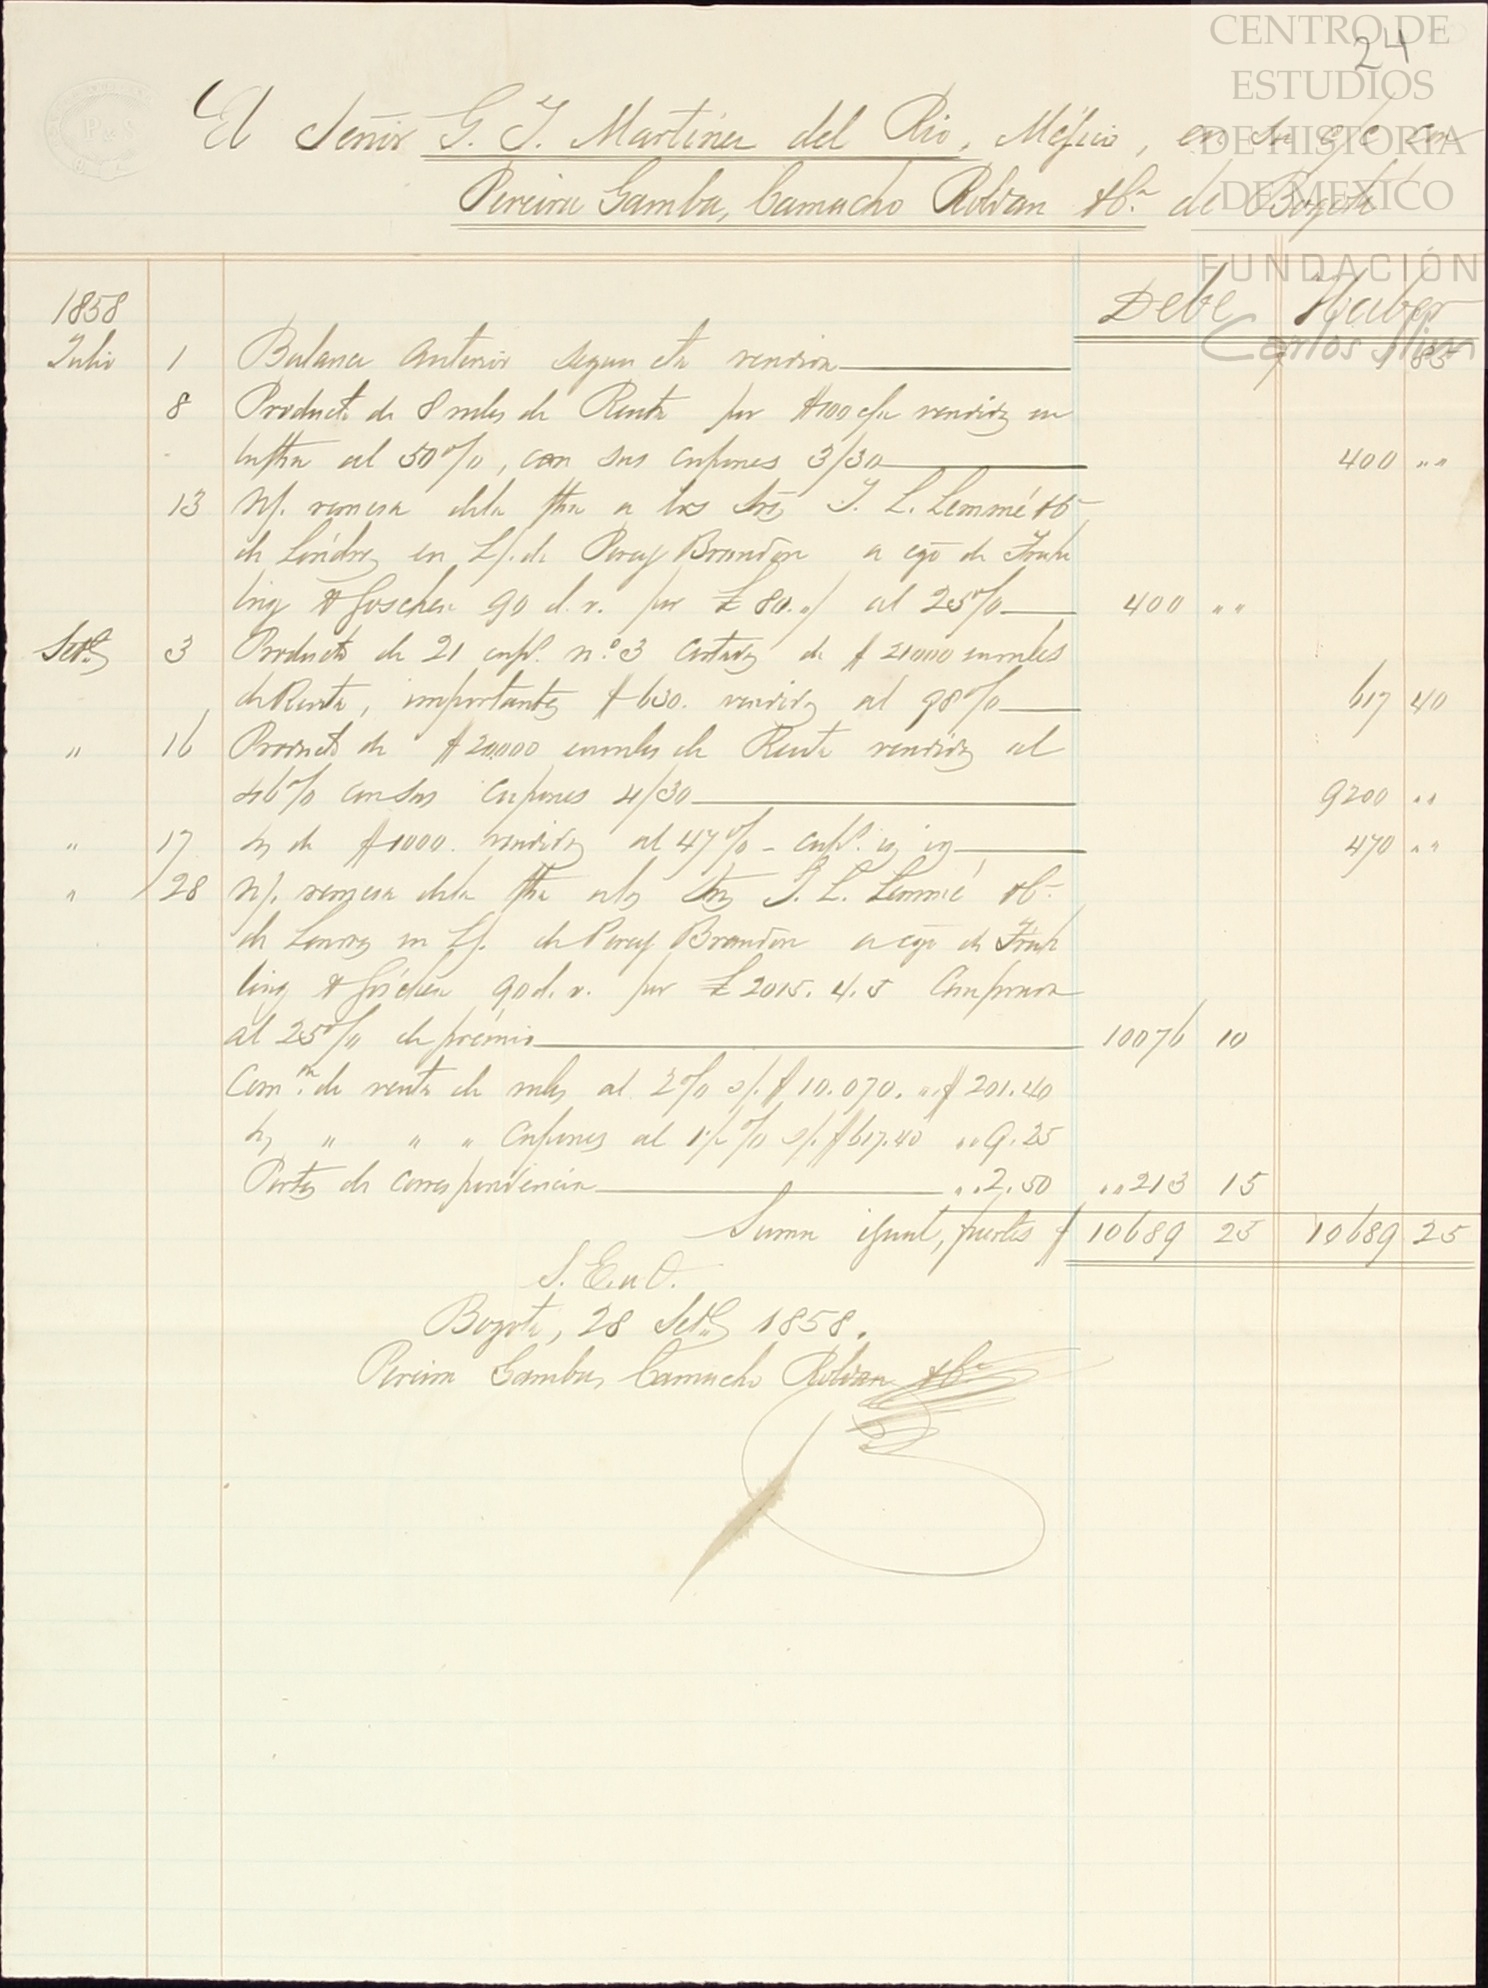 24
CENTRO DE
ESTUDIOS
DE HISTORIA
DE MEXICO
FUNDACIÓN
Carlos Slim
El Señor G. J. Martinez del Rio, Méjico, en su c/c con
Pereira Gamba, Camacho Roldan & Ca. de Bogotá
Debe Haber
1858
Julio 1 Balance anterior segun cta rendida 1 85
8 Producto de 8 vales de Renta por $100 c/u vendidos en
al 50%, con sus cupones 3/30 400 ""
13 N/. remesa de la a los Sres J. L. Lemmé & Ca
de Londres en L/. de Percy Brandon a cgo de Fruh
ling & Goschen 90 d. v. por £ 80. al 25% 400 ""
Setbre 3 Producto de 21 cups. n.º 3 cortados de $ 21000 en vales
de Renta, importantes $ 630. vendidos al 98% 617 40
" 16 Producto de $ 20,000 en vales de Renta vendidos al
46% con sus cupones 4/30 9200 ""
" 17 de $ 1000. vendidos al 47% - cups. 470 ""
" 28 N/. remesa de la a los Sres J. L. Lemmé & Ca.
de Londres en L/. de Percy Brandon a cgo de Fruh
ling & Góschen 90 d. v. por £ 2015. 4. 5 comprada
al 25% de prémio 10076 10
Comon. de venta de vales al 2% s/. $ 10.070. " $ 201.40
" " " cupones al 1 1/2 % s/. $ 617.40 " " 9.25
Portes de correspondencia " " 2.50 " " 213 15
Suma igual, fuertes $ 10689 25 10689 25
S. E. u O.
Bogotá, 28 Setbre 1858.
Pereira Gamba, Camacho Roldan & Ca